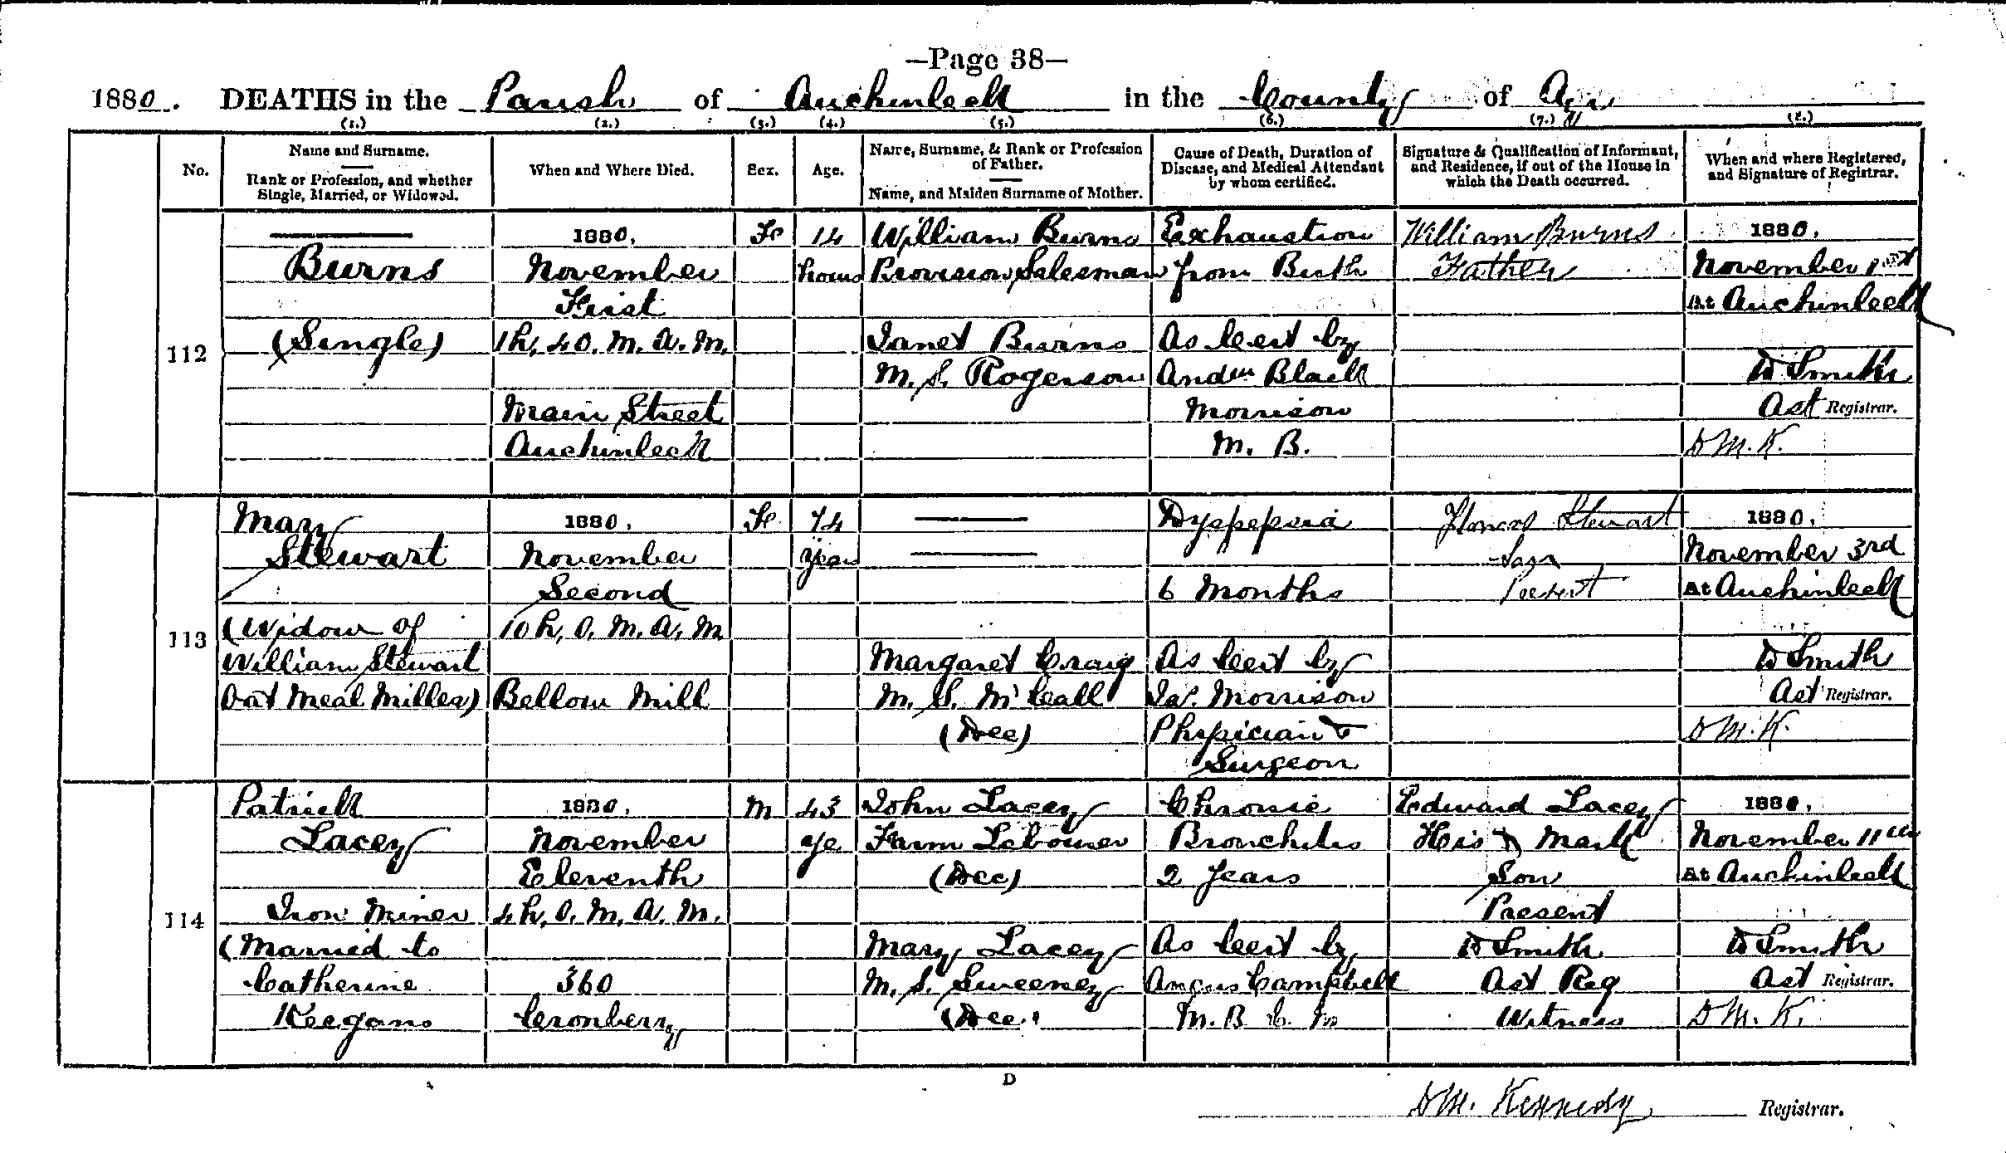 —Page 38—
1880. DEATHS in the Parish of Auchinleck in the County of Ayr
(1.) (2.) (3.) (4.) (5.) (6.) (7.) (8.)
No.
Name and Surname.
Rank or Profession, and whether
Single, Married, or Widowed.
When and Where Died.
Sex.
Age.
Name, Surname, & Rank or Profession
of Father.
Name, and Maiden Surname of Mother.
Cause of Death, Duration of
Disease, and Medical Attendant
by whom certified.
Signature & Qualification of Informant,
and Residence, if out of the House in
which the Death occurred.
When and where Registered,
and Signature of Registrar.
112
Burns
(Single)
1880.
November
First
1h. 40. M. A. M.
Main Street
Auchinleck
F
14
hours
William Burns
Provision Salesman
Janet Burns
M. S. Rogerson
Exhaustion
from Birth
As Cert by
Andw Black
Morrison
M. B.
William Burns
Father
1880.
November 1st
At Auchinleck
D Smith
Ast Registrar.
D M. K.
113
Mary
Stewart
(Widow of
William Stewart
Oat Meal Miller)
1880.
November
Second
10 h, 0. M. A. M
Bellow Mill
F
74
years
Margaret Craig
M. S. McCall
(Dec)
Dyspepsia
6 Months
As Cert by
Jas. Morrison
Physician &
Surgeon
Stewart
1880.
November 3rd
At Auchinleck
D Smith
Ast Registrar.
D M. K.
114
Patrick
Lacey
Iron Miner
(Married to
Catherine
Keegans
1880.
November
Eleventh
4h. 0. M. A. M.
360
Cronberry
M
43
ye
John Lacey
Farm Labourer
(Dec)
Mary Lacey
M. S. Sweeney
(Dec)
Chronic
Bronchitis
2 Years
As Cert by
Angus Campbell
M. B. C. M
Edward Lacey
His X Mark
Son
Present
D Smith
Ast Reg
Witness
1880.
November 11th
At Auchinleck
D Smith
Ast Registrar.
D M. K.
D
D M. Kennedy Registrar.